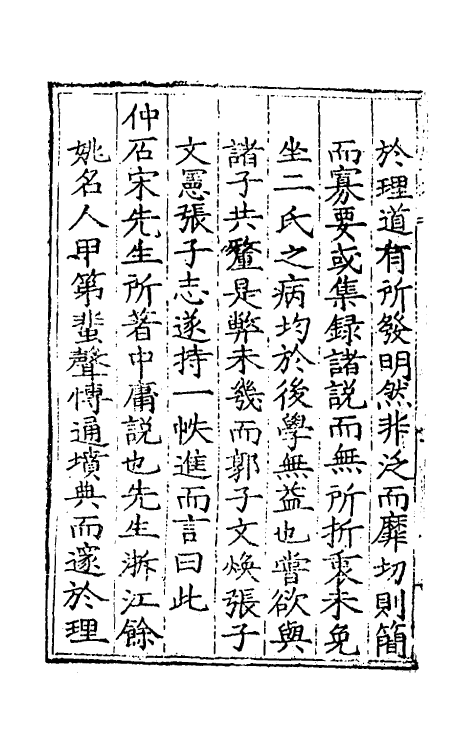 於理道有所發明然非泛而靡切則簡
而寡要或集録諸説而無所折衷未免
坐二氏之病均於後學無益也嘗欲與
諸子共釐是弊未幾而郭子文煥張子
文憲張子志遂持一帙進而言曰此
仲石宋先生所著中庸説也先生浙江餘
姚名人甲第蜚聲慱通墳典而邃於理